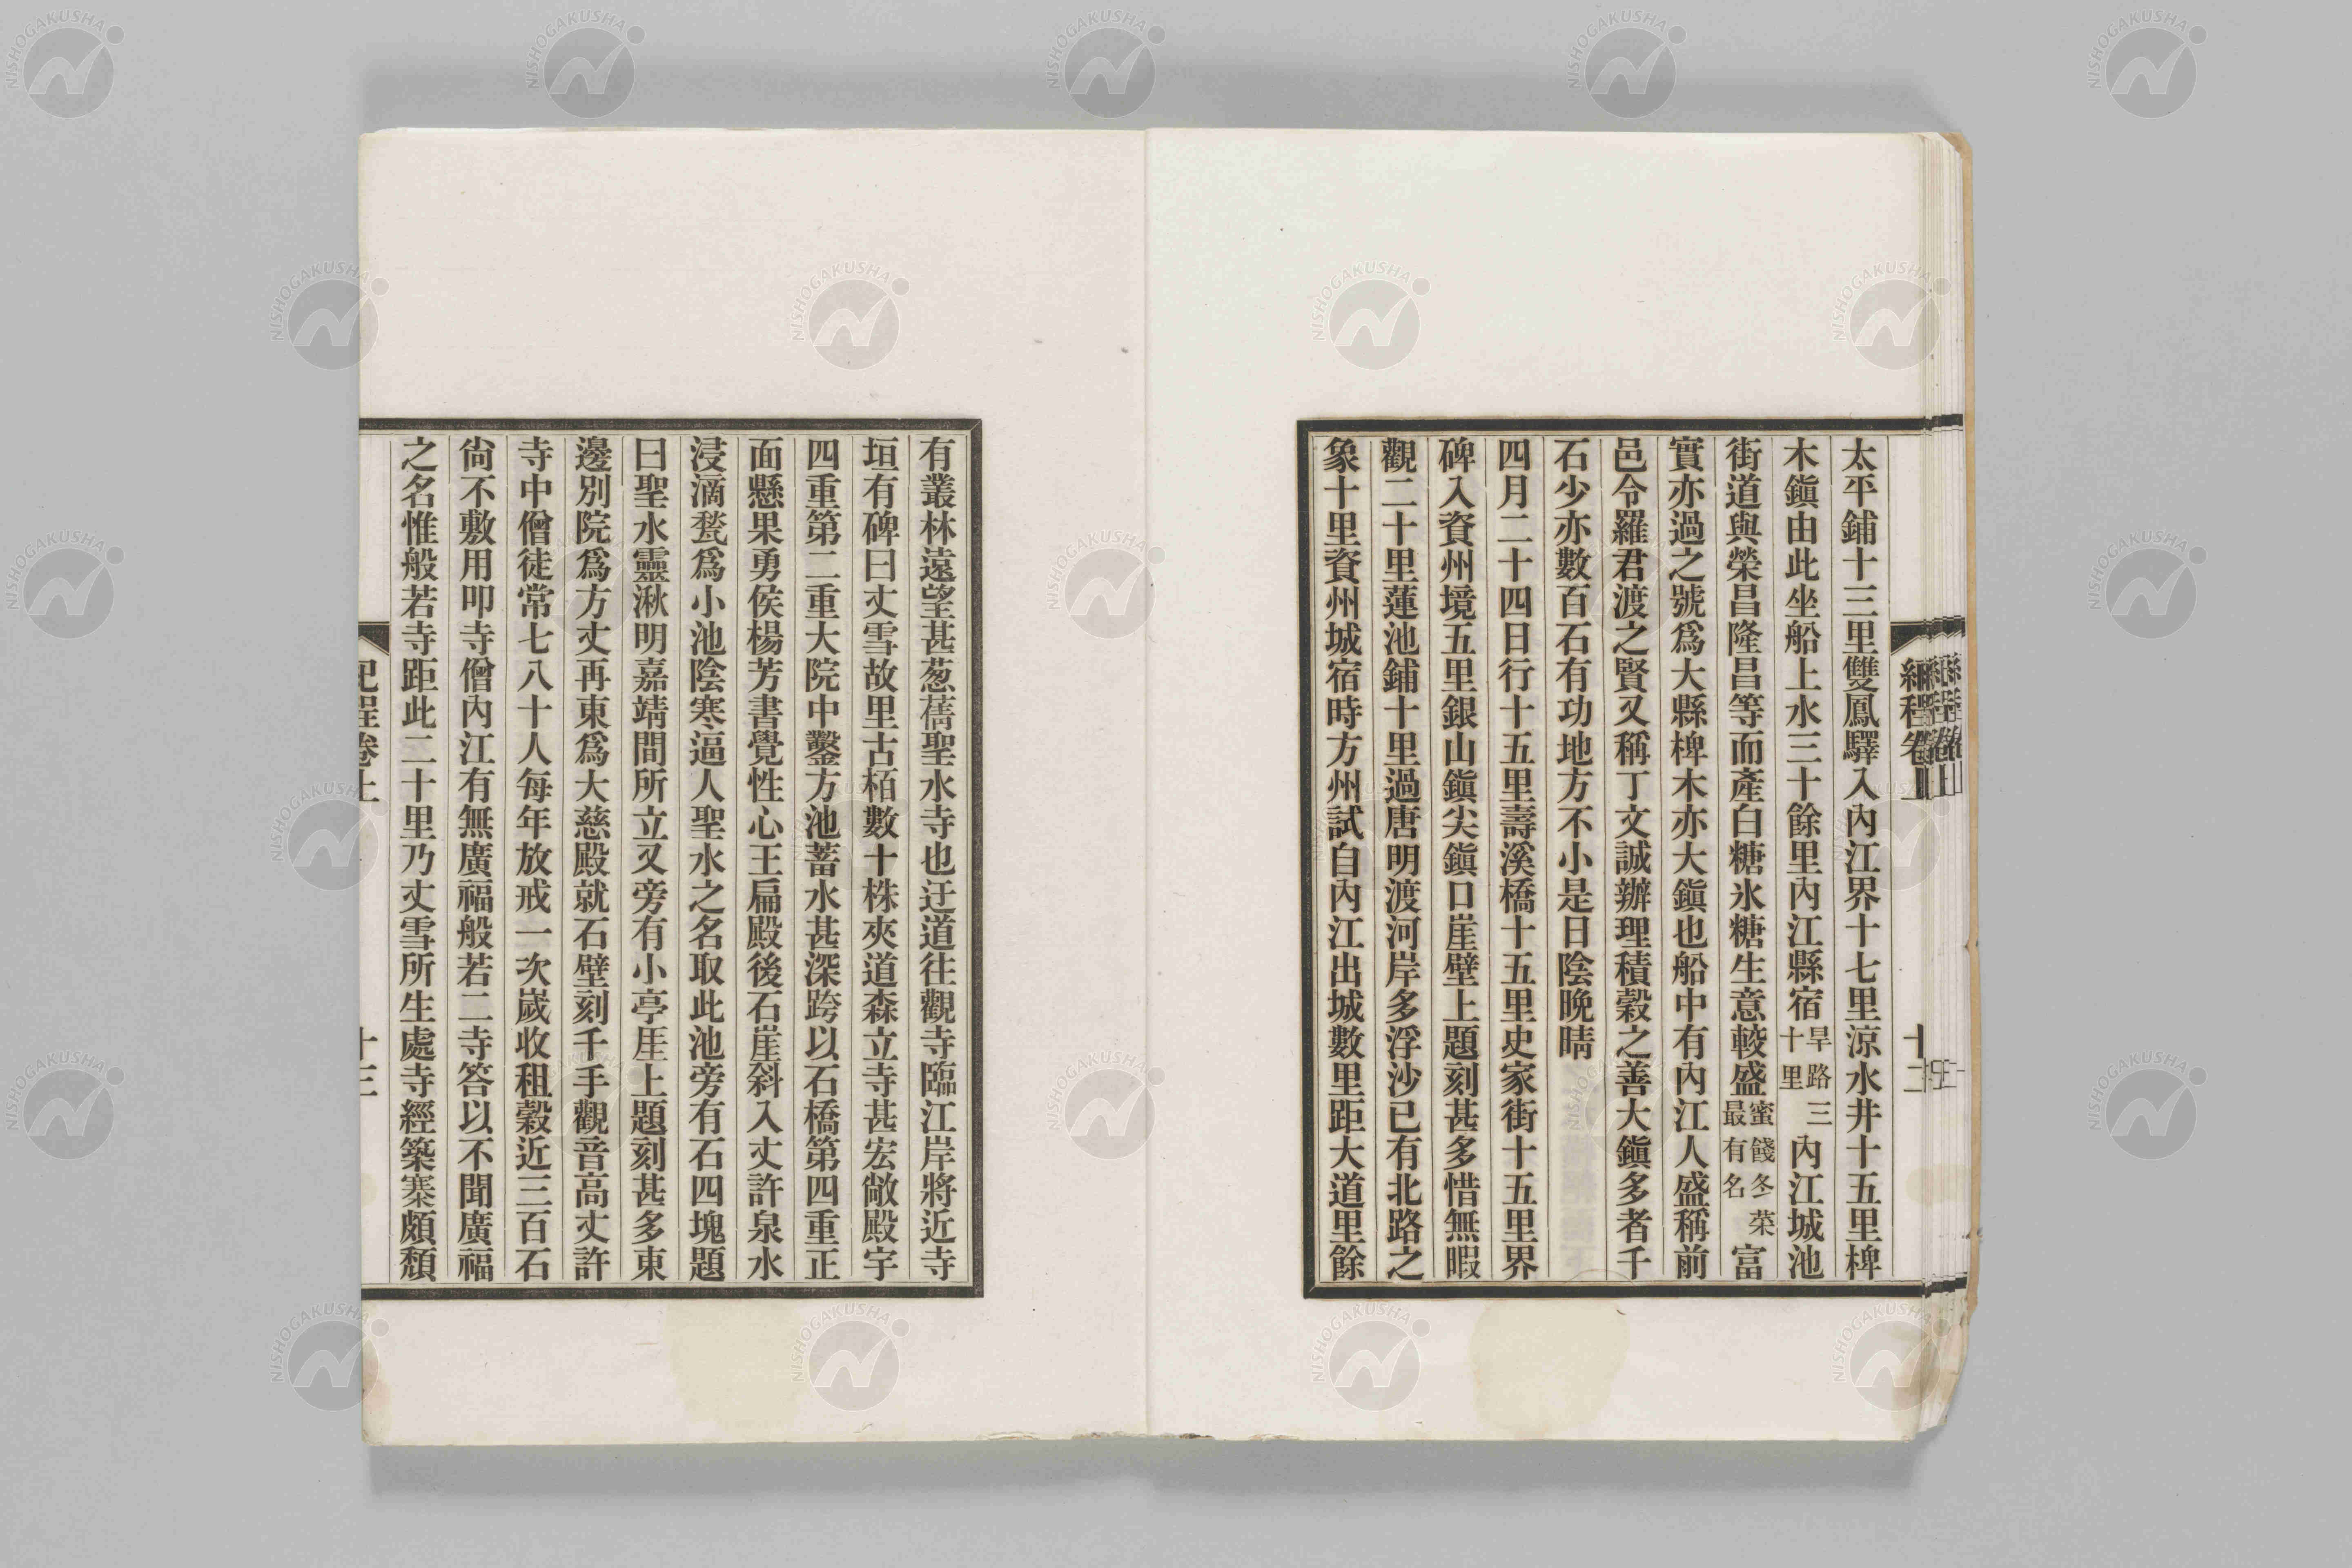 太平鋪十三里雙鳳驛入內江界十七里涼水井十五里椑
木鎭由此坐船上水三十餘里內江縣宿旱路三十里內江城池
街道與榮昌隆昌等而產白糖氷糖生意較盛蜜餞冬菜最有名富
實亦過之號爲大縣椑木亦大鎭也船中有內江人盛稱前
邑令羅君渡之賢又稱丁文誠辦理積穀之善大鎭多者千
石少亦數百石有功地方不小是日陰晚晴
四月二十四日行十五里壽溪橋十五里史家街十五里界
碑入資州境五里銀山鎭尖鎭口崖壁上題刻甚多惜無暇
觀二十里蓮池鋪十里過唐明渡河岸多浮沙已有北路之
象十里資州城宿時方州試自內江出城數里距大道里餘
紀程卷上
十二
有叢林遠望甚葱蒨聖水寺也迂道往觀寺臨江岸將近寺
垣有碑曰丈雪故里古栢數十株夾道森立寺甚宏敞殿宇
四重第二重大院中鑿方池蓄水甚深跨以石橋第四重正
面懸果勇侯楊芳書覺性心王扁殿後石崖斜入丈許泉水
浸滴甃爲小池陰寒逼人聖水之名取此池旁有石四塊題
曰聖水靈湫明嘉靖間所立又旁有小亭厓上題刻甚多東
邊別院爲方丈再東爲大慈殿就石壁刻千手觀音高丈許
寺中僧徒常七八十人每年放戒一次歲收租穀近三百石
尙不敷用叩寺僧內江有無廣福般若二寺答以不聞廣福
之名惟般若寺距此二十里乃丈雪所生處寺經築寨頗頹
紀程卷上
十三
NISHOGAKUSHA